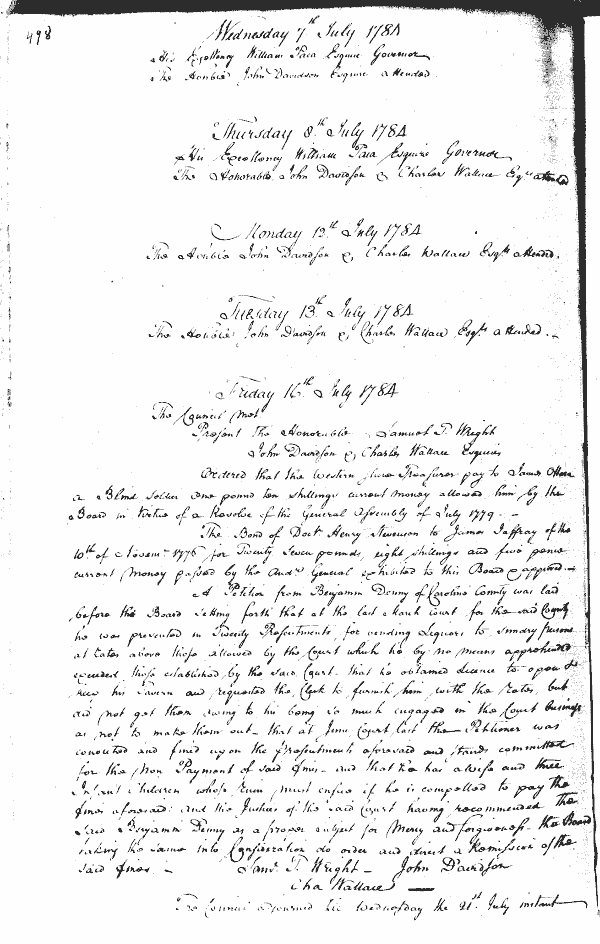 498
Wednesday 7th July 1784
His Excellency William Paca Esquire Governor
The Honble John Davidson Esquire attended.
Thursday 8th July 1784
His Excellency William Paca Esquire Governor
The Honorable John Davidson & Charles Wallace Esqrs attended
Monday 12th July 1784
The Honble John Davidson & Charles Wallace Esqrs attended.
Tuesday 13th July 1784
The Honble John Davidson & Charles Wallace Esqrs attended. -
Friday 16th July 1784
The Council met
Present the Honorable Samuel T. Wright
John Davidson & Charles Wallace Esquires
Ordered that the western shore Treasurer pay to James
a Blind Soldier one pound ten shillings current money allowed him by the
Board in Virtue of a Resolve of the General Assembly of July 1779. -
The Bond of Doctr Henry Stevenson to James Jaffray of the
10th of Novemr 1776 for Twenty Seven pounds, eight shillings and five pence
current money passed by the Audr General exhibited to this Board & approved -
A Petition from Benjamin Denny of Caroline County was laid
before the Board setting forth that at the last March Court for the said County
he was presented in Twenty Presentments, for vending Liquors to sundry persons
at rates above those allowed by the Court which he by no means apprehended
exceeded those established by the said Court. that he obtained licence to open &
keep his Tavern and requested the Clerk to furnish him with the rates, but
did not get them owing to his being so much engaged in the Court business
as not to make them out - that at June Court last the Petitioner was
convicted and fined upon the Presentments aforesaid and stands committed
for the Non Payment of said fines - and that he has a Wife and three
Infant Children whose Ruin must ensue if he is compelled to pay the
fines aforesaid: and the Justices of the said Court having recommended the
said Benjamin Denny as a proper subject for Mercy and forgiveness. the Board
taking the same into Consideration do order and direct a Remission of the
said fines. -
Saml T. Wright - John Davidson
Cha Wallace -
The Council adjourned till Wednesday the 21st July instant